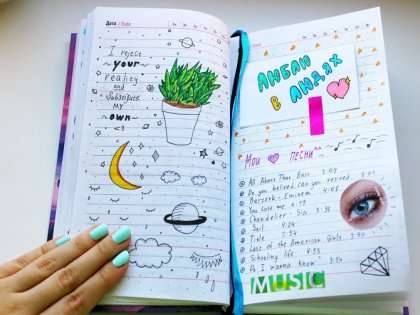 Дата / Date
I reject
your
reality
and
Substitute
MY
own
<3
ЛЮБЛЮ
В ЛЮДЯХ
Мои песни
All About That Bass 4:01
Do you believed, can you
Berzerk - Eminem 4:03
You Love me
Chandelier - Sia 3:36
Sail 4:34
Title 2:
Loss of the American Girls
Schooling life 4:33
Do I wanna know?
MUSIC